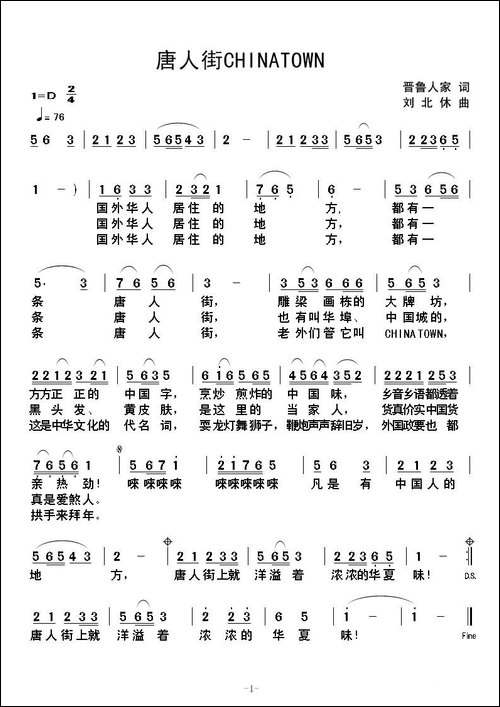 唐人街CHINATOWN
1=D 2/4
晋鲁人家 词
♩=76
刘北休 曲
5 6 3 | 2 1 2 3 | 5 6 5 4 3 | 2 - | 2 1 2 3 | 5 6 5 3 | 2 2 3 6 5
1 - ) | 1 6 3 3 | 2 3 2 1 | 7 6 5 | 6 - | 5 5 3 | 6 5 6
国外华人 居住的 地 方, 都有一
国外华人 居住的 地 方, 都有一
国外华人 居住的 地 方, 都有一
条 唐 人 街, 雕梁 画栋的 大牌坊,
条 唐 人 街, 也有叫华埠、 中国城的,
条 唐 人 街, 老外们管它叫 CHINATOWN,
方方正 正的 中国字, 烹炒 煎炸的 中国味, 乡音乡语都透着
黑头发、 黄皮肤, 是这里的 当家人, 货真价实中国货
这是中华文化的 代名词, 耍龙灯舞狮子, 鞭炮声声辞旧岁, 外国政要也都
亲热劲! 唻唻唻唻 唻唻唻唻 凡是有 中国人的
真是爱煞人。
拱手来拜年。
地 方, 唐人街上就 洋溢着 浓浓的华夏 味! D.S.
唐人街上就 洋溢着 浓浓的 华夏 味! Fine
-1-